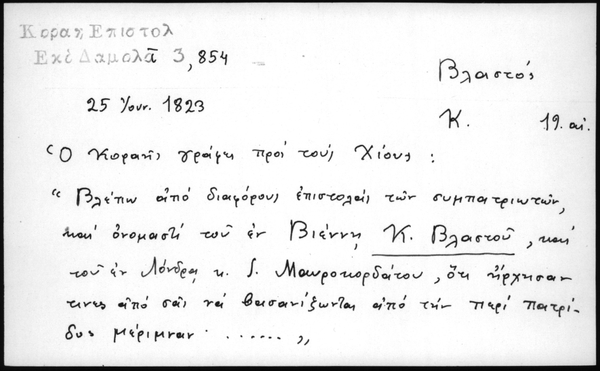 Κοραη Επιστολ
Εκδ Δαμαλᾶ 3, 854
Βλαστός
25 Ιουν. 1823
Κ. 19. αἰ.
Ὁ Κοραῆς γράφει πρὸς τοὺς Χίους :
" Βλέπω ἀπὸ διαφόρους ἐπιστολὰς τῶν συμπατριωτῶν,
καὶ ὀνομαστὶ τοῦ ἐν Βιέννῃ Κ. Βλαστοῦ, καὶ
τοῦ ἐν Λόνδρᾳ κ. Ι. Μαυροκορδάτου, ὅτι ἤρχησαν
τινες ἀπὸ σᾶς νὰ βασανίζωνται ἀπὸ τὴν περὶ πατρί-
δος μέριμναν ...... "